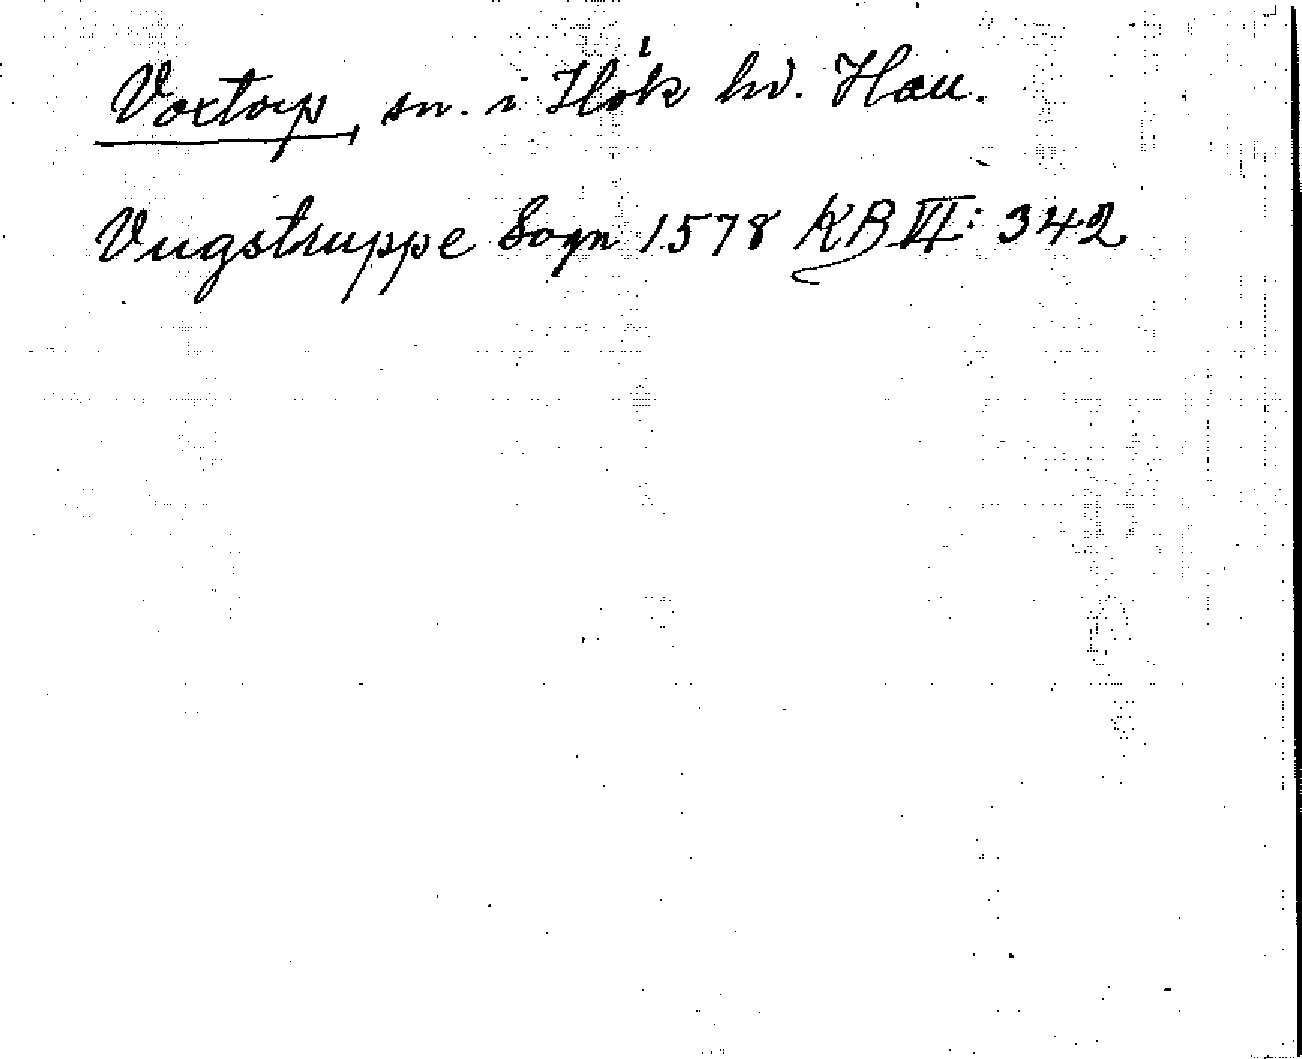 Voxtorp, sn. i Hök hd. Hall.
Vugstruppe Sogn 1578 KB VI: 342